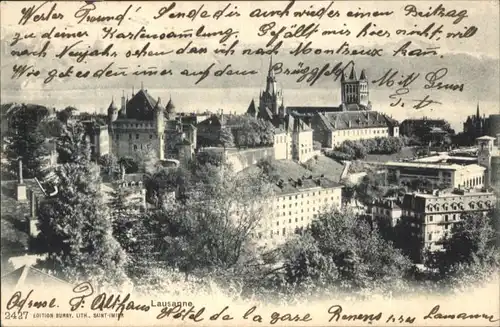 Werter Freund! Sende dir auch wieder einen Beitrag
zu deiner Kartensammlung. Gefällt mir hier nicht, will
nach Neujahr sehen dass ich nach Montreux kann.
Wie geht es dem immer auf dem Brüggfeld? Mit Gruss
Lausanne
2427 EDITION BURGY, LITH., SAINT-IMIER
Adresse: F. Althaus Hôtel de la gare Renens près Lausanne